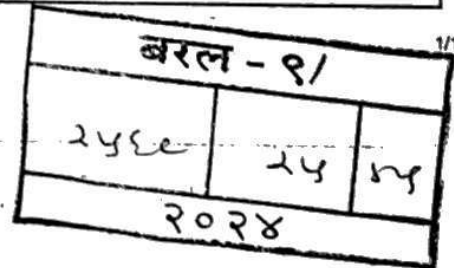 बरल - ९/
२५६९ २५ ४५
२०२४